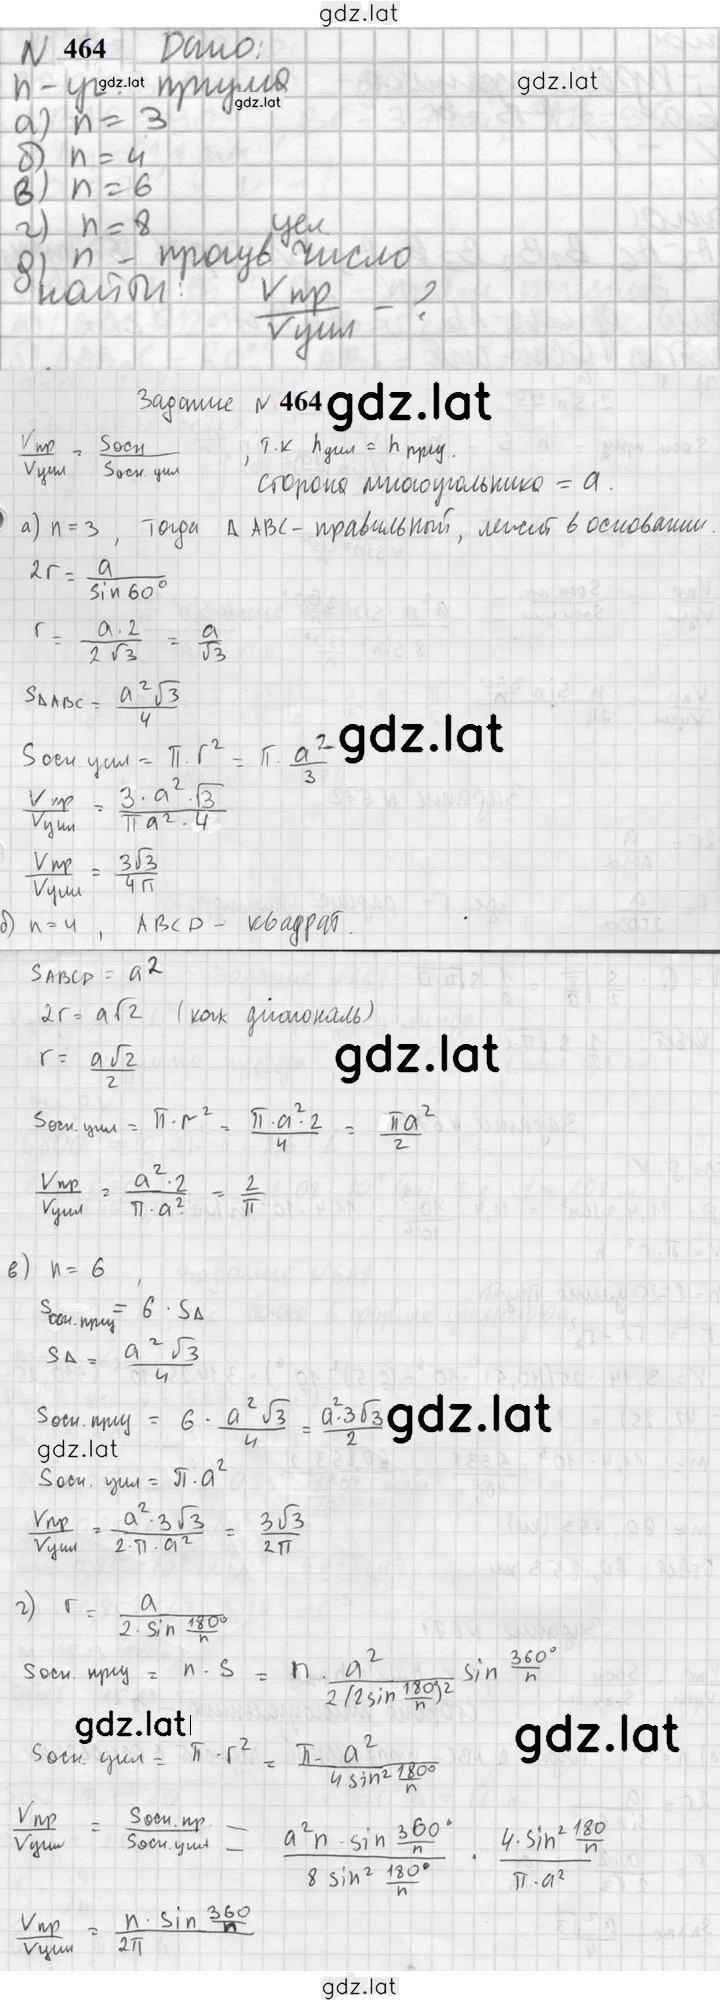 gdz.lat
N 464 Дано:
n-уг. призма
gdz.lat
gdz.lat
а) n = 3
б) n = 4
в) n = 6
г) n = 8
цел
д) n - произв число
найти: Vпр/Vцил - ?
Задание N 464 gdz.lat
Vпр/Vцил = Sосн/Sосн.цил , т.к hцил = hприз.
сторона многоугольника = a.
а) n = 3 , Тогда ΔABC - правильный, лежит в основании.
2r = a/sin60°
r = a·2/2√3 = a/√3
SΔABC = a²√3/4
gdz.lat
Sосн.цил = π·r² = π·a²/3
Vпр/Vцил = 3·a²·√3/πa²·4
Vпр/Vцил = 3√3/4π
б) n = 4 , ABCD - квадрат.
SABCD = a²
2r = a√2 (как диагональ)
r = a√2/2
gdz.lat
Sосн.цил = π·r² = π·a²·2/4 = πa²/2
Vпр/Vцил = a²·2/π·a² = 2/π
в) n = 6 ,
Sосн.приз = 6·SΔ
SΔ = a²√3/4
Sосн.приз = 6·a²√3/4 = a²3√3/2 gdz.lat
gdz.lat
Sосн.цил = π·a²
Vпр/Vцил = a²·3√3/2·π·a² = 3√3/2π
г) r = a/2·sin 180°/n
Sосн.приз = n·S = n·a²/2(2sin 180°/n)² sin 360°/n
gdz.lat gdz.lat
Sосн.цил = π·r² = π·a²/4sin² 180°/n
Vпр/Vцил = Sосн.пр/Sосн.цил = a²n·sin 360°/n / 8 sin² 180°/n · 4·sin² 180/n / π·a²
Vпр/Vцил = n·sin 360/n / 2π
gdz.lat